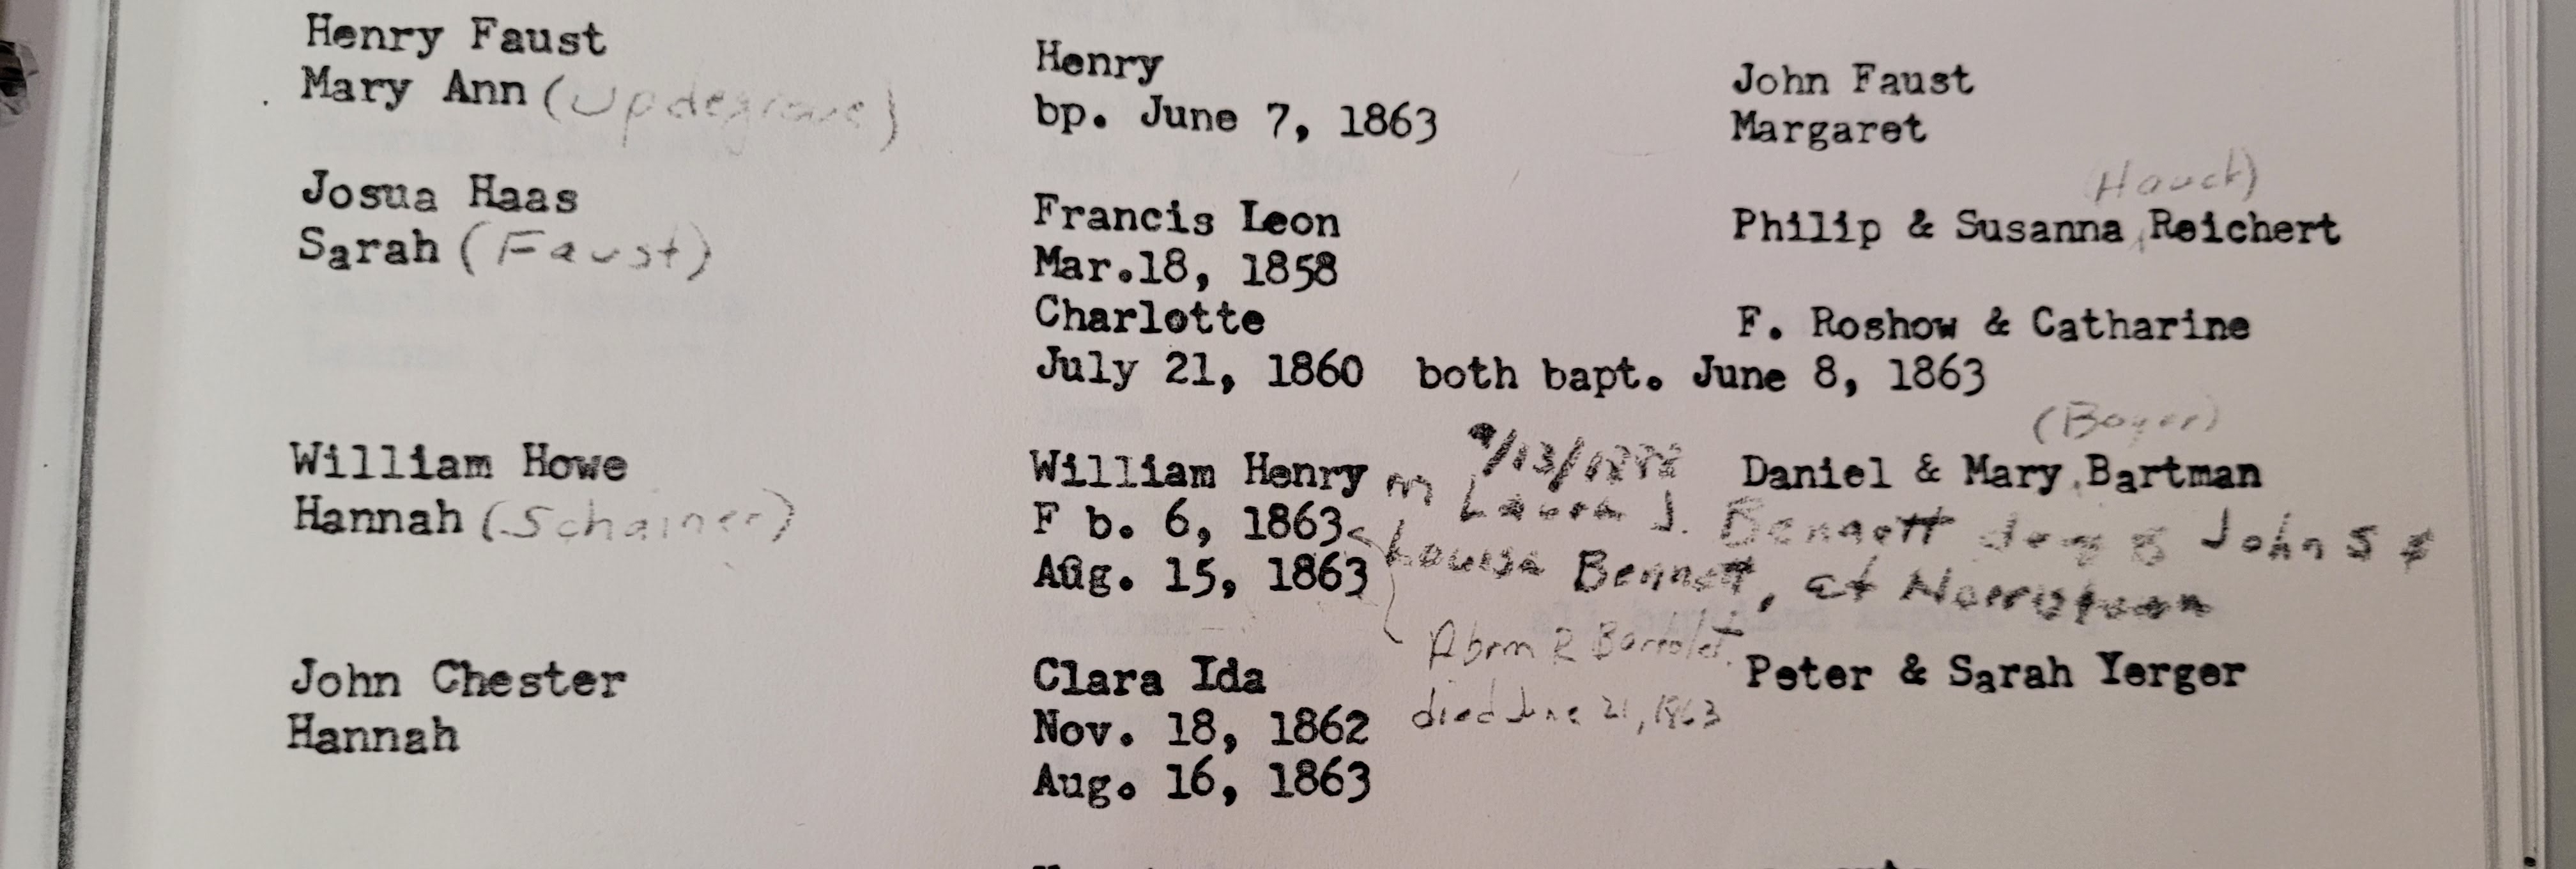 Henry Faust
Mary Ann (Updegrove)
Henry
bp. June 7, 1863
John Faust
Margaret
Josua Haas
Sarah (Faust)
Francis Leon
Mar.18, 1858
Charlotte
July 21, 1860 both bapt. June 8, 1863
(Hauck)
Philip & Susanna, Reichert
F. Roshow & Catharine
William Howe
Hannah (Schainer)
William Henry
F b. 6, 1863
Aug. 15, 1863
m 9/13/1888
Laura J. Bennett John S &
Louisa Bennett, at Norristown
Abrm R Bartolet
died June 21, 1863
(Boyer)
Daniel & Mary, Bartman
John Chester
Hannah
Clara Ida
Nov. 18, 1862
Aug. 16, 1863
Peter & Sarah Yerger